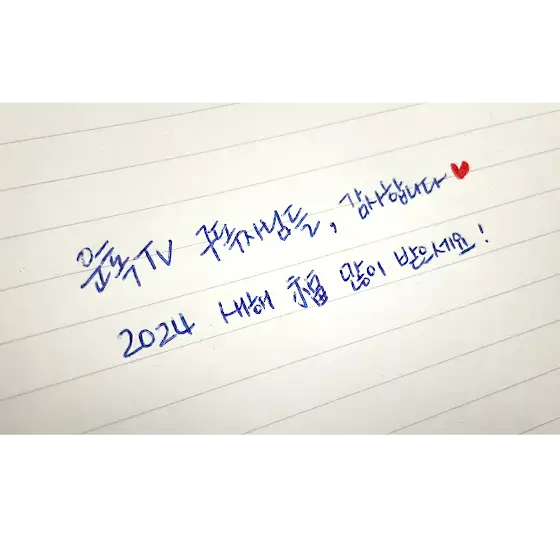 TV 구독자님들, 감사합니다♥
2024 새해 福 많이 받으세요!